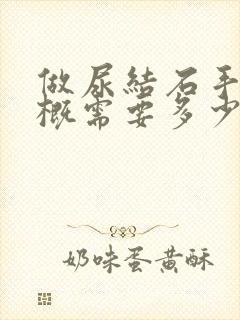 做尿結石手
概需要多少
奶味蛋黄酥